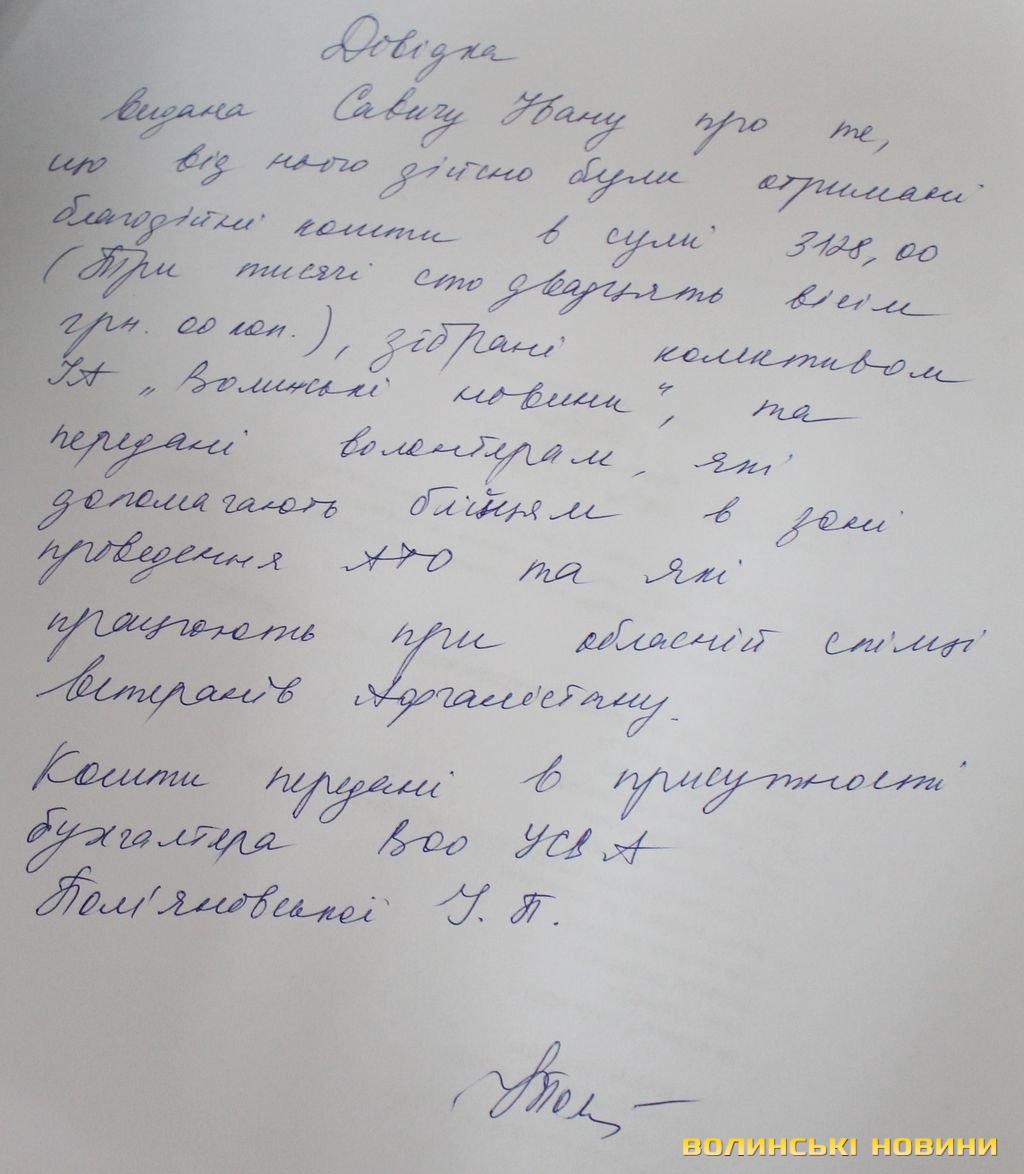 Довідка
видана Савичу Івану про те,
що від нього дійсно були отримані
благодійні кошти в сумі 3128,00
(Три тисячі сто двадцять вісім
грн. 00 коп.), зібрані колективом
ІА „Волинські новини“, та
передані волонтерам, які
допомагають бійцям в зоні
проведення АТО та які
працюють при обласній спілці
ветеранів Афганістану.
Кошти передані в присутності
бухгалтера ВОО УСВА
Пом'яновської І. П.
ВОЛИНСЬКІ НОВИНИ